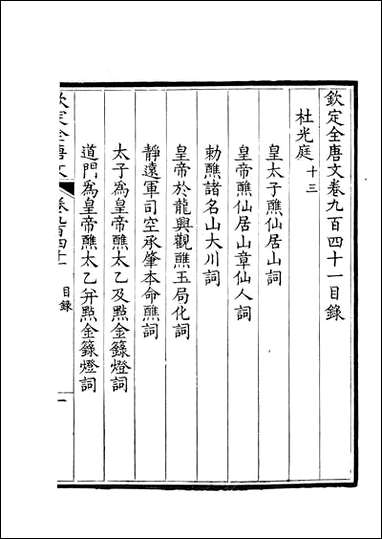 欽定全唐文卷九百四十一目錄
杜光庭十三
皇太子醮仙居山詞
皇帝醮仙居山章仙人詞
勅醮諸名山大川詞
皇帝於龍興觀醮玉局化詞
靜遠軍司空承肇本命醮詞
太子為皇帝醮太乙及點金籙燈詞
道門為皇帝醮太乙并點金籙燈詞
欽定全唐文 卷九百四十一 目錄 一